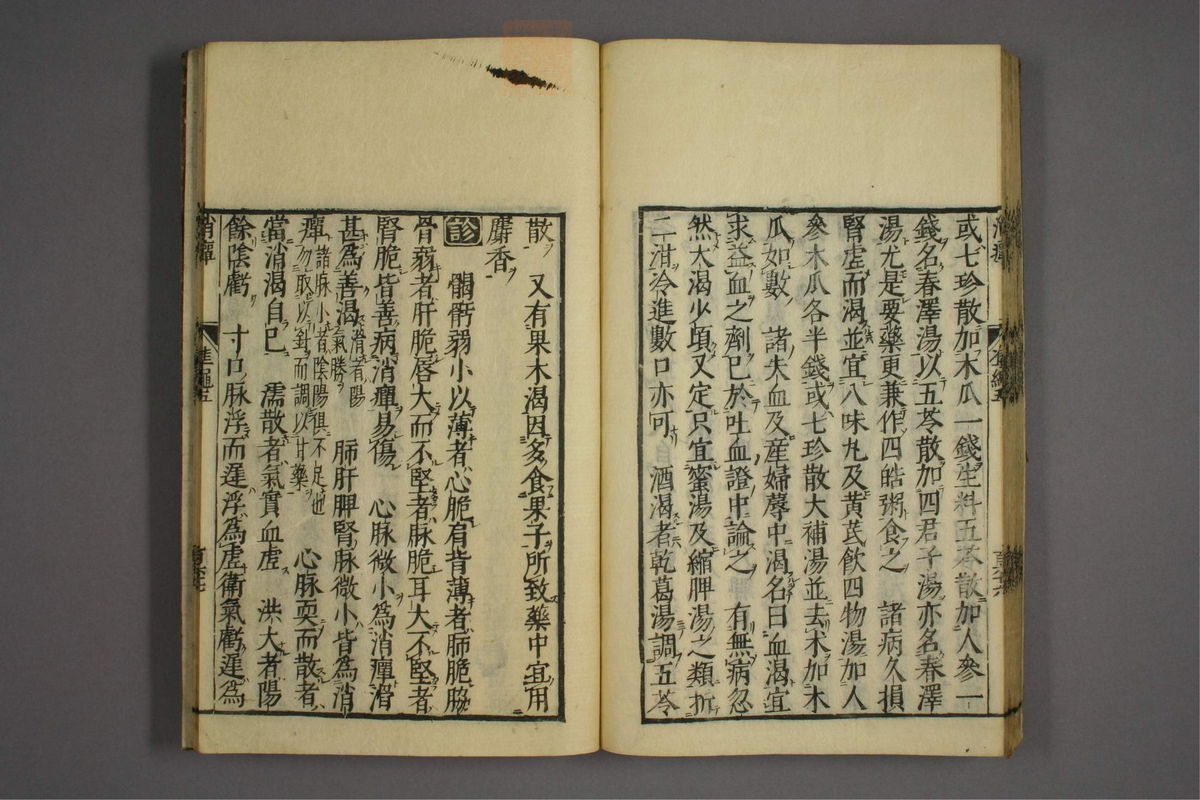 或七珍散加木瓜一錢生料五苓散加人參一
錢名春澤湯以五苓散加四君子湯亦名春澤
湯尤是要藥更兼作四皓粥食之　諸病久損
腎虚而渴並宜八味丸及黄芪飲四物湯加人
參木瓜各半錢或七珍散大補湯並去术加木
瓜如數　諸失血及産婦蓐中渴名曰血渴宜
求益血之劑已於吐血證中論之　有無病忽
然大渴少頃又定只宜蜜湯及縮脾湯之類折
二泔冷進數口亦可　酒渴者乾葛湯調五苓
散　又有果木渴因多食果子所致藥中宜用
麝香
診　䯏䯒弱小以薄者心脆肩背薄者肺脆脇
骨弱者肝脆唇大而不堅者脉脆耳大不堅者
腎脆皆善病消癉易傷　心脉微小為消癉滑
甚為善渴滑者陽氣勝　肺肝脾腎脉微小皆為消
癉諸脉小者陰陽俱不足也勿取以針而調以甘藥　心脉耎而散者
當消渴自已　濡散者氣實血虚　洪大者陽
餘陰虧　寸口脉浮而遲浮為虚衛氣虧遲為
消癉
準繩五
百六十七